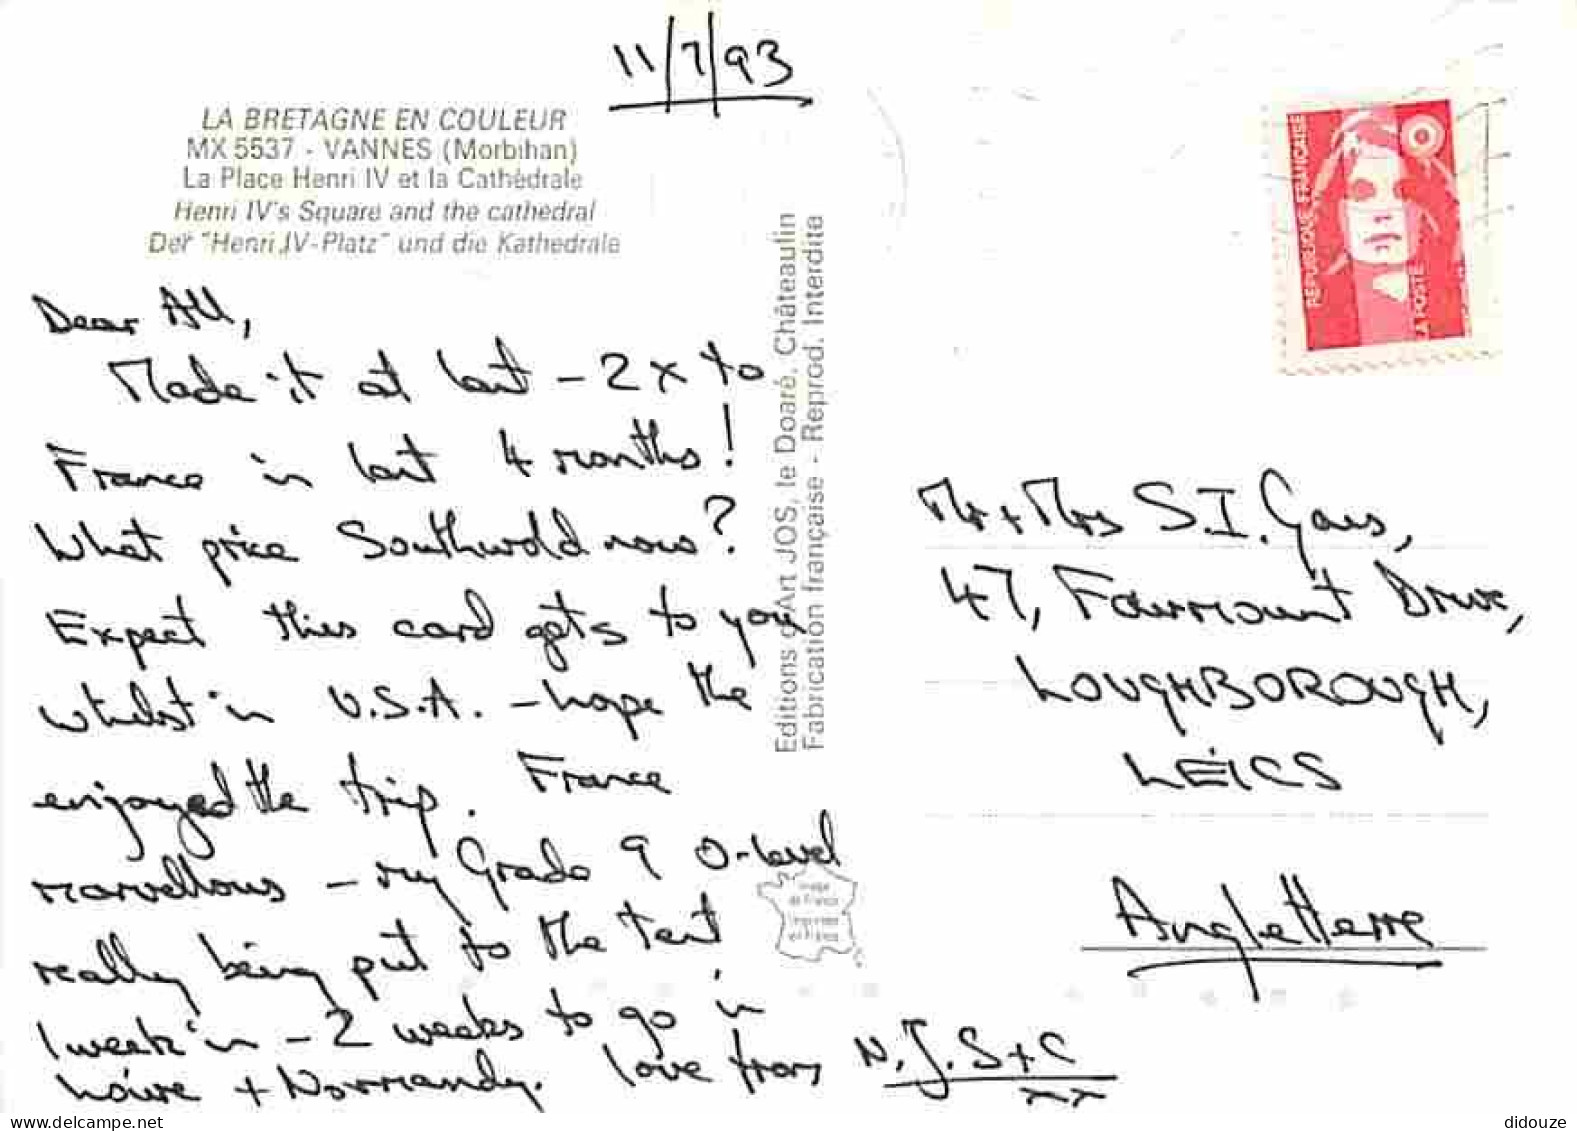 11/7/93
LA BRETAGNE EN COULEUR
MX 5537 - VANNES (Morbihan)
La Place Henri IV et la Cathédrale
Henri IV's Square and the cathedral
Der "Henri IV-Platz" und die Kathedrale
Dear All,
Made it at last - 2 x to
France in last 4 months!
What price Southwold now?
Expect this card gets to you
whilst in U.S.A. - hope the
enjoyed the trip. France
marvellous - my Grade 9 O-level
really being put to the test
1 week in - 2 weeks to go in
Loire + Normandy. love from N. J. S + C
xx
Editions d'Art JOS, le Doaré, Châteaulin
Fabrication française - Reprod. Interdite
Image
de France
Imprimée
en France
REPUBLIQUE FRANÇAISE
LA POSTE
Mr + Mrs S. I.
47, Fairmount Drive,
LOUGHBOROUGH,
LEICS
Angleterre
www.delcampe.net
didouze